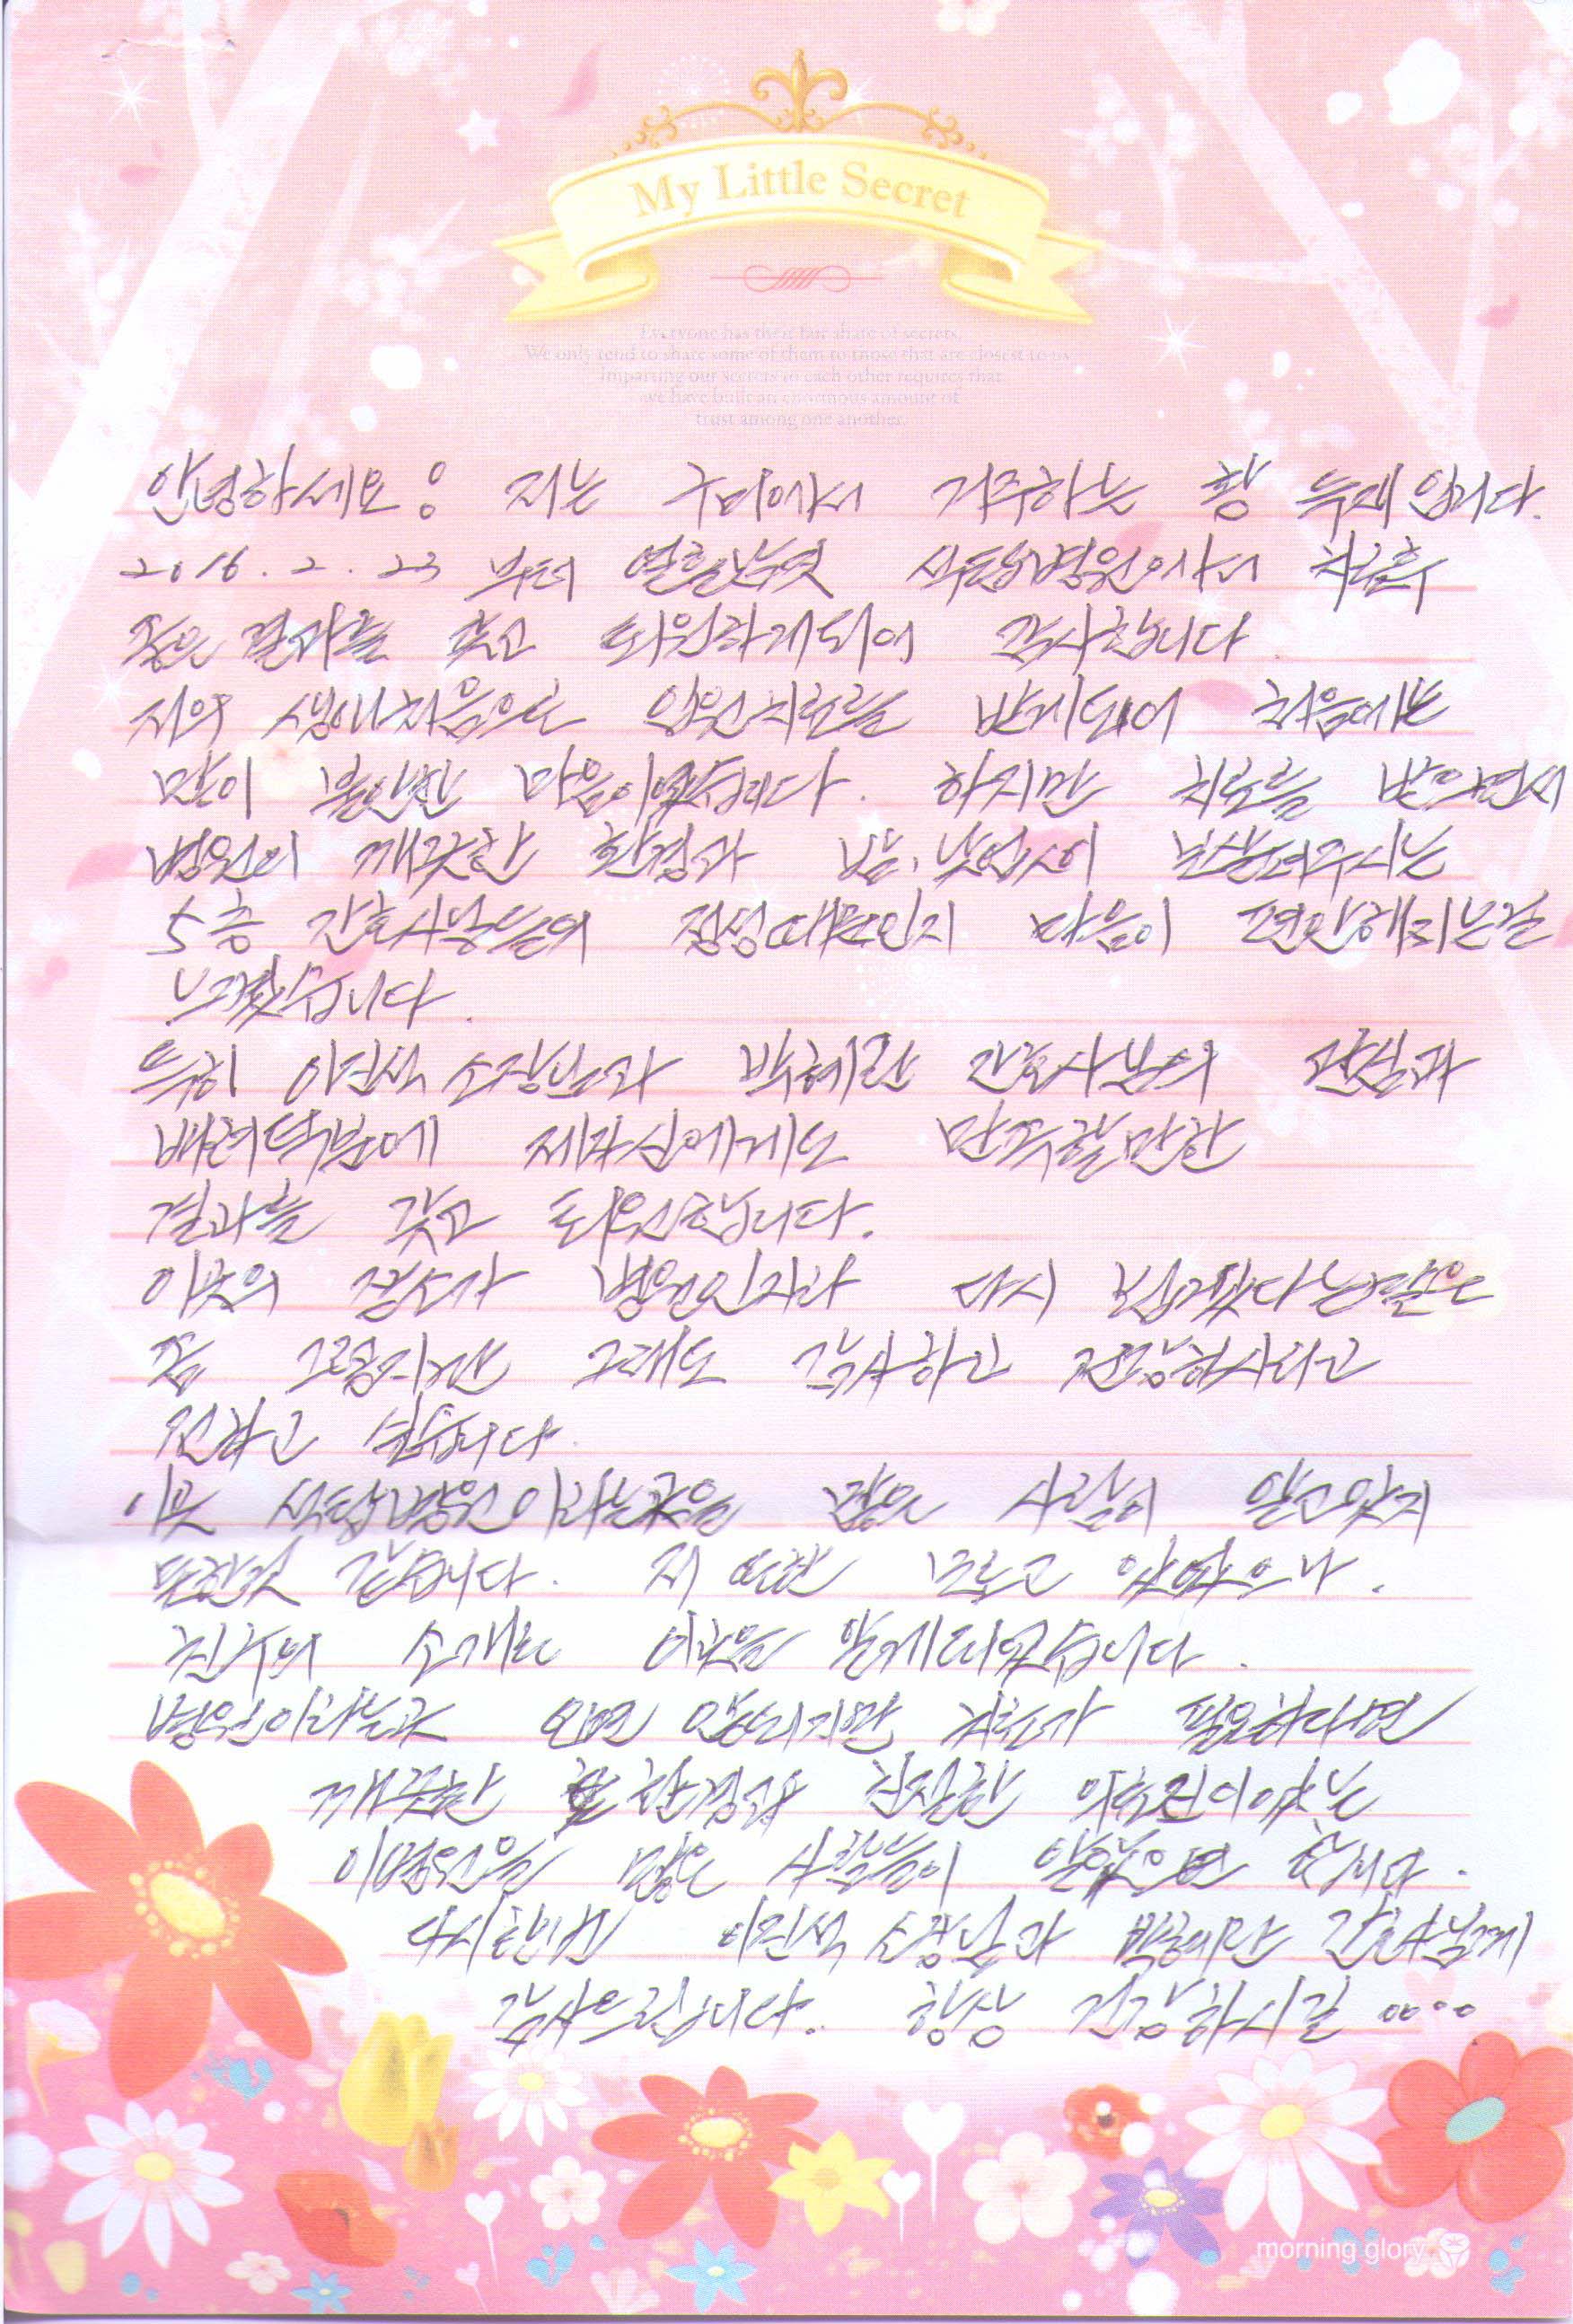 My Little Secret
Everyone has their fair share of secrets.
We only tend to share some of them to those that are closest to us
Imparting our secrets to each other requires that
we have built an enormous amount of
trust among one another.
안녕하세요! 저는 구미에서 거주하는 입니다.
2016. 2. 23 부터 열흘남짓 병원에서 치료후
좋은 결과를 갖고 퇴원하게되어 감사합니다.
저의 생애처음으로 입원치료를 받게되어 처음에는
많이 불안한 마음이였습니다. 하지만 치료를 받으면서
병원의 깨끗한 환경과 밤.낮없이 보살펴주시는
5층 간호사님들의 정성때문인지 마음이 편안해지는걸
느꼈습니다.
특히 이진석 소장님과 박혜란 간호사님의 관심과
배려덕분에 제자신에게도 만족할만한
결과를 갖고 퇴원합니다.
이곳의 장소가 병원인지라 다시 뵙겠다는말은
좀 그렇지만 그래도 감사하고 건강하시라고
전하고 싶습니다.
이곳 병원이라는곳을 많은 사람이 알고있지
못한것 같습니다. 저 또한 모르고 있었으나.
친구의 소개로 이곳을 알게되었습니다.
병원이라는곳 오면 안되지만 치료가 필요하다면
깨끗한 환경과 친절한 의료진이있는
이병원을 많은 사람들이 알았으면 합니다.
다시한번 이진석 소장님과 박혜란 간호사님께
감사드립니다. 항상 건강하시길 ....
morning glory